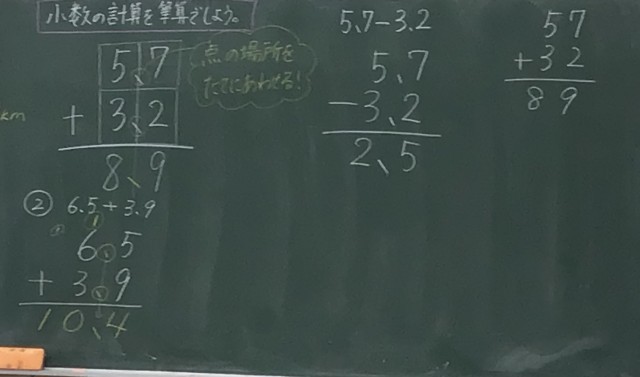 小数の計算を筆算でしよう。
5.7
+ 3.2
8.9
点の場所を
たてにあわせる!
km
② 6.5+3.9
1
6.5
+ 3.9
10.4
5.7-3.2
5.7
-3.2
2.5
57
+32
89